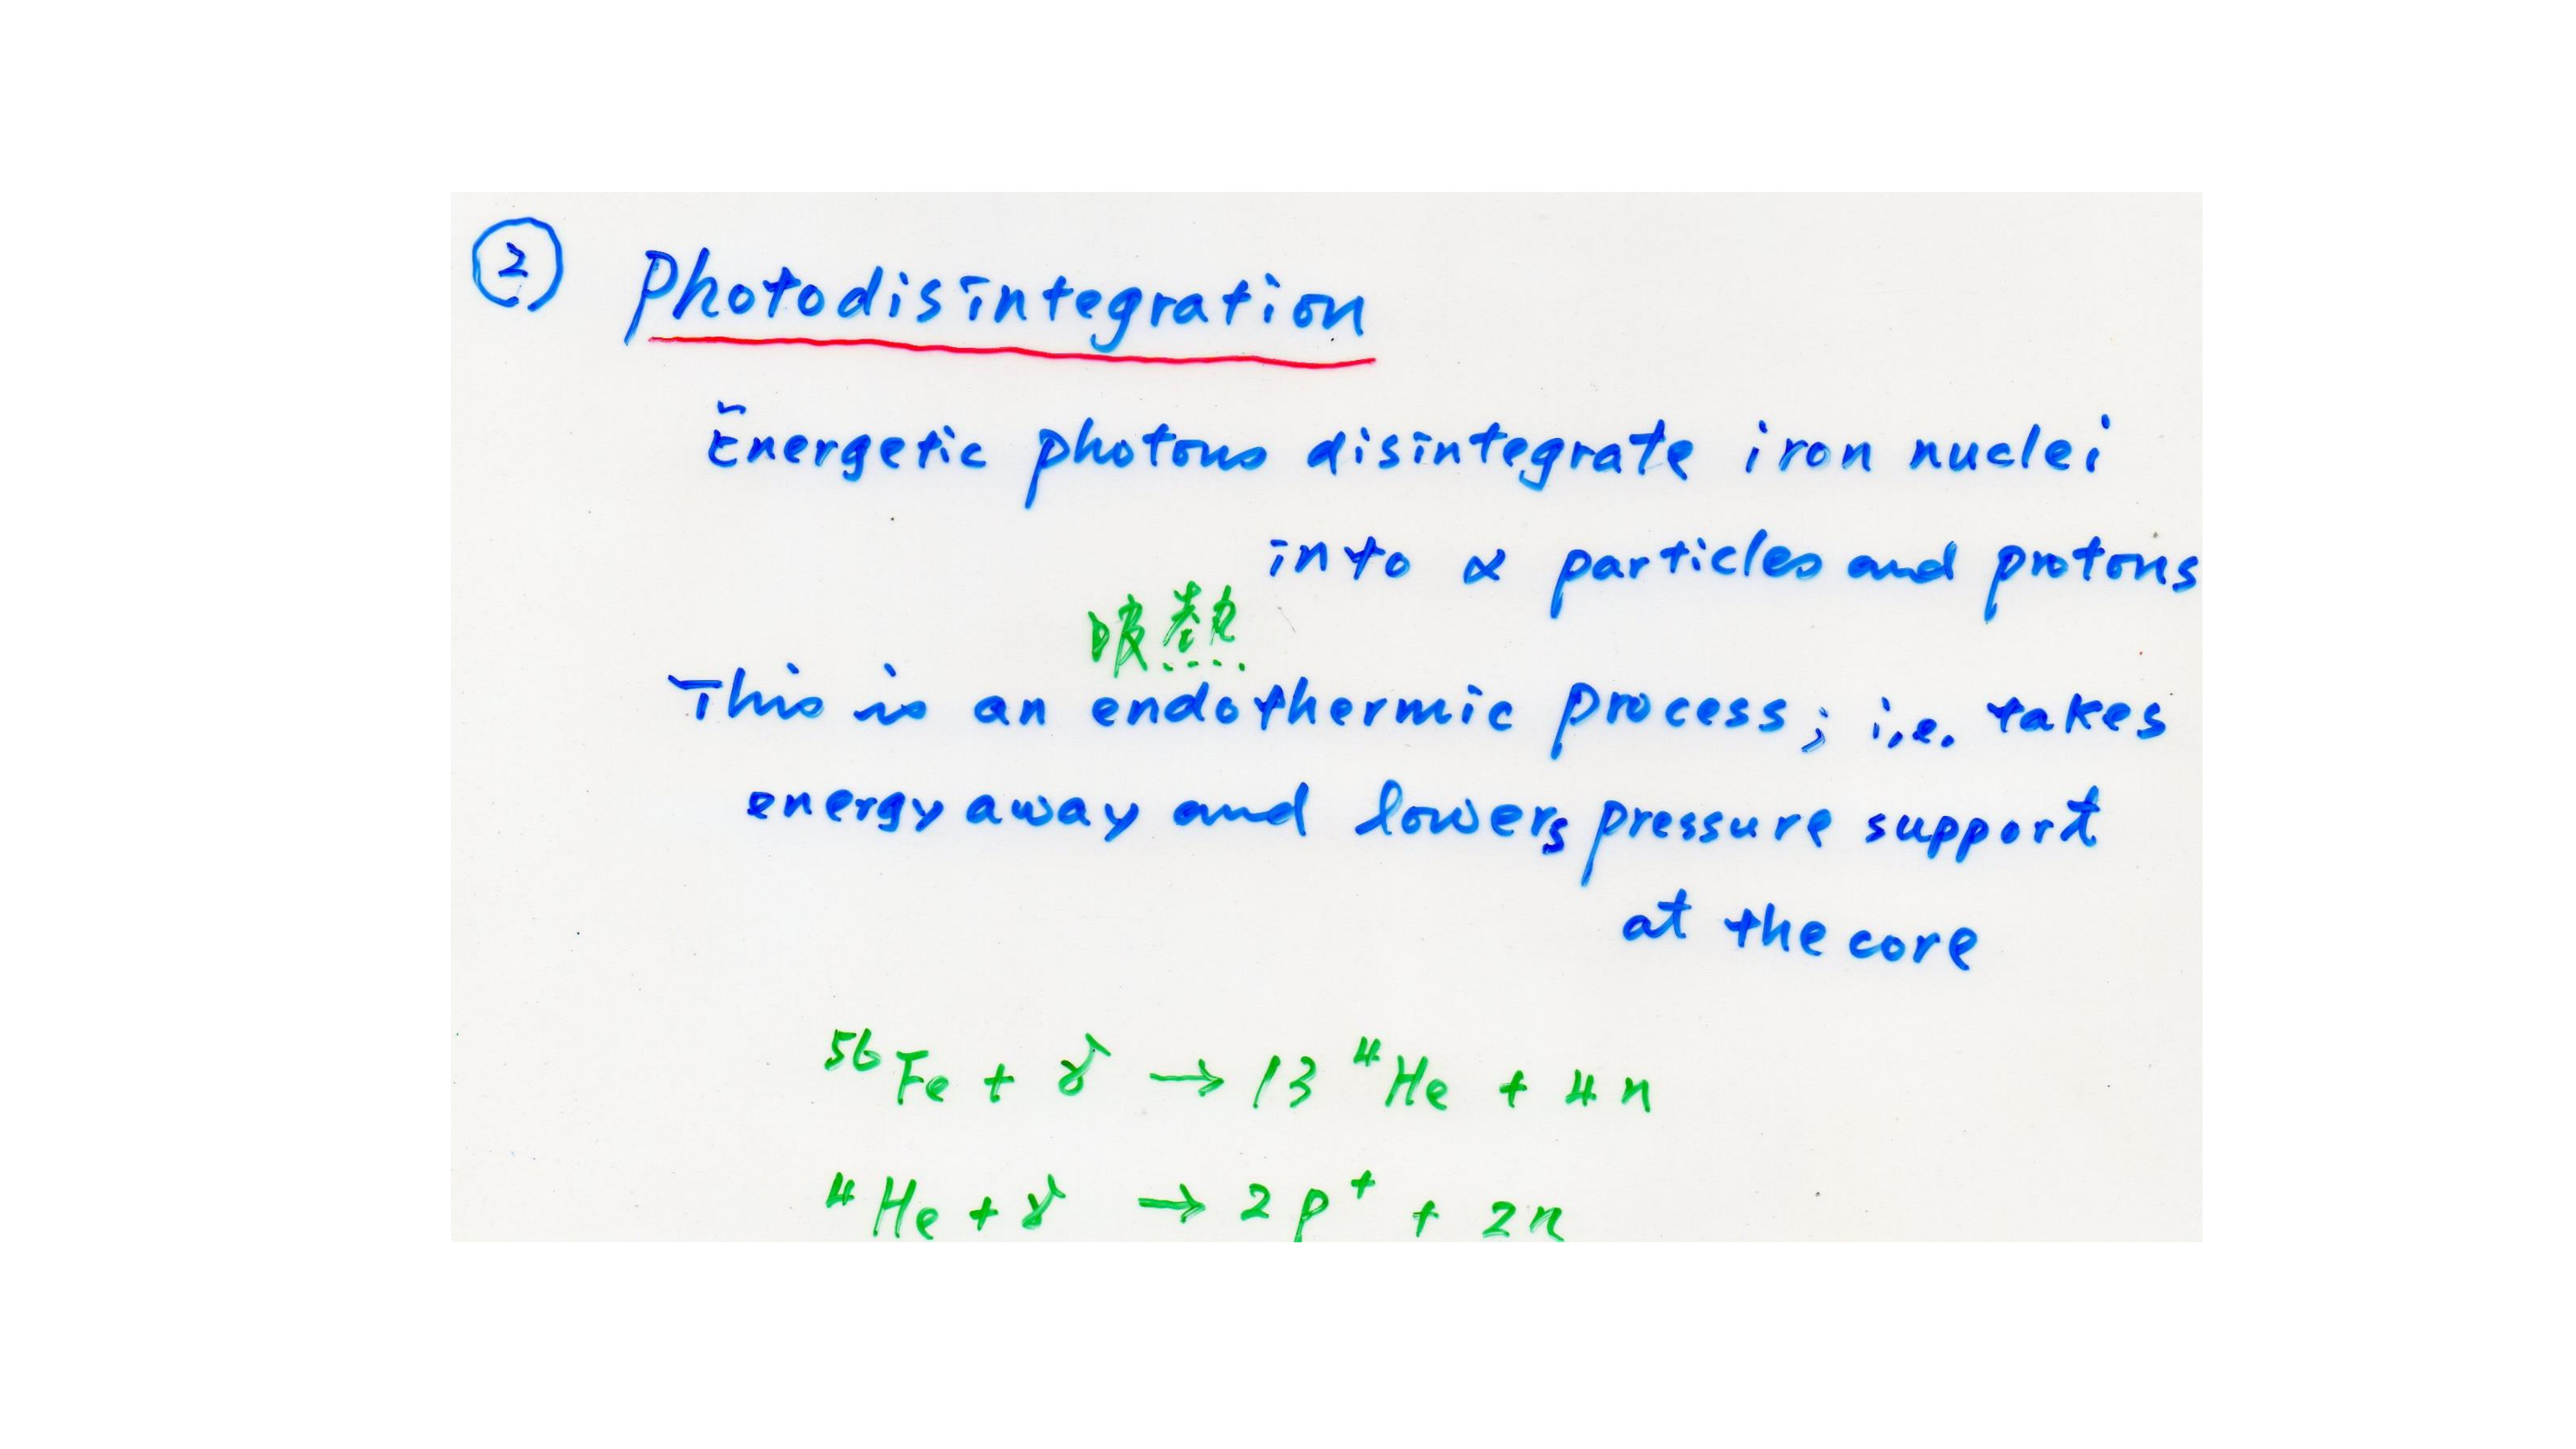 ② Photodisintegration
Energetic photons disintegrate iron nuclei
into α particles and protons
吸熱
This is an endothermic process; i.e. takes
energy away and lowers pressure support
at the core
⁵⁶Fe + γ → 13 ⁴He + 4n
⁴He + γ → 2p⁺ + 2n